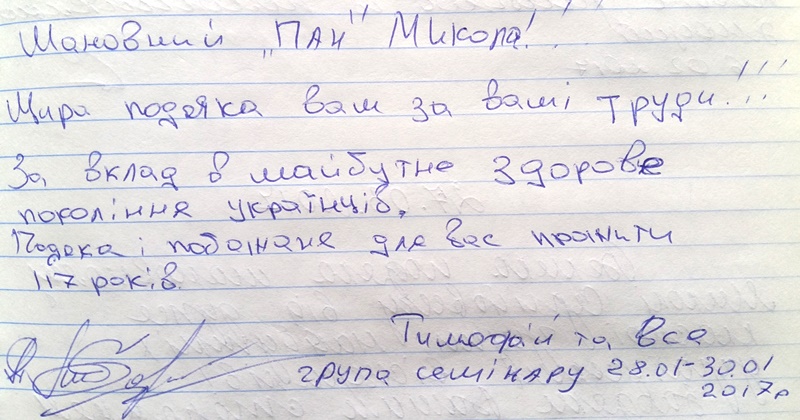 Шановний „Пан" Микола!
Щира подяка вам за ваші труди!!!
За вклад в майбутнє здорове
покоління українців.
Подяка і побажаня для вас прожити
117 років.
Тимофій та вся
група семінару 28.01-30.01
2017р